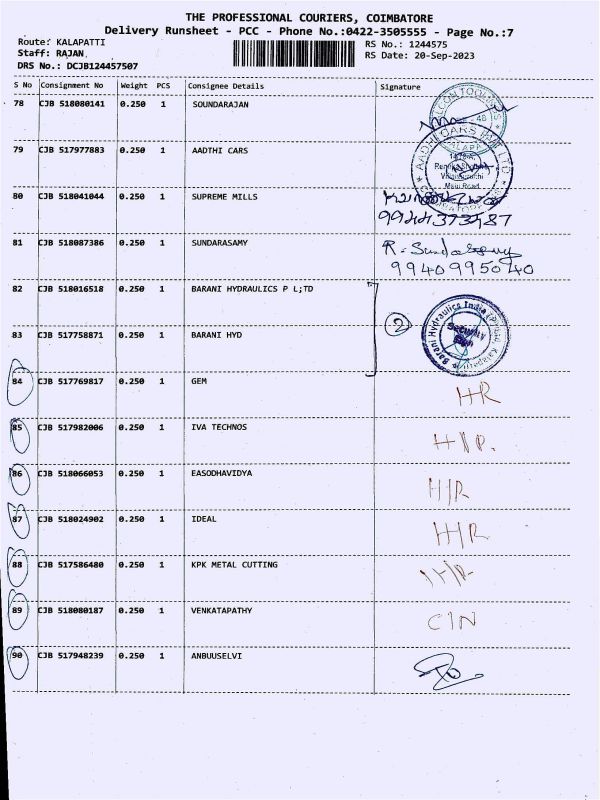 THE PROFESSIONAL COURIERS, COIMBATORE
Delivery Runsheet - PCC - Phone No.:0422-3505555 - Page No.:7
Route: KALAPATTI
RS No.: 1244575
Staff: RAJAN
RS Date: 20-Sep-2023
DRS No.: DCJB124457507
S No Consignment No Weight PCS Consignee Details Signature
78 CJB 518080141 0.250 1 SOUNDARAJAN
79 CJB 517977883 0.250 1 AADTHI CARS
80 CJB 518041044 0.250 1 SUPREME MILLS
81 CJB 518087386 0.250 1 SUNDARASAMY R. Sundarasamy
9940995040
82 CJB 518016518 0.250 1 BARANI HYDRAULICS P L;TD
2 Barani Hydraulics India
Security
83 CJB 517758871 0.250 1 BARANI HYD
84 CJB 517769817 0.250 1 GEM HR
85 CJB 517982006 0.250 1 IVA TECHNOS
86 CJB 518066053 0.250 1 EASODHAVIDYA H/R
87 CJB 518024902 0.250 1 IDEAL H/R
88 CJB 517586480 0.250 1 KPK METAL CUTTING
89 CJB 518080187 0.250 1 VENKATAPATHY C/N
90 CJB 517948239 0.250 1 ANBUUSELVI